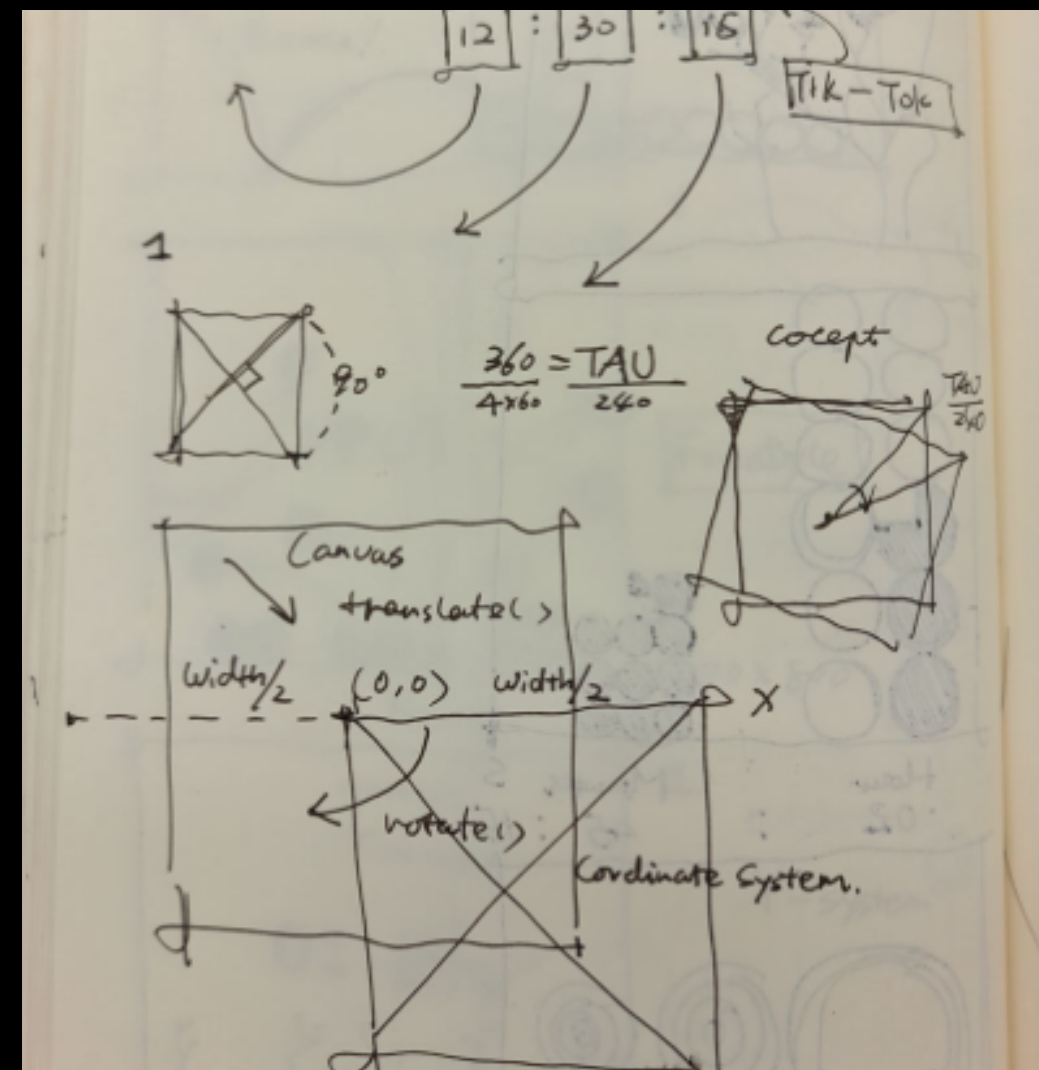 12 : 30 : 15
Tik - Tok
1
90°
360 = TAU
4x60 240
cocept
TAU
240
Canvas
translate()
width/2 (0,0) width/2 X
rotate()
Cordinate System.